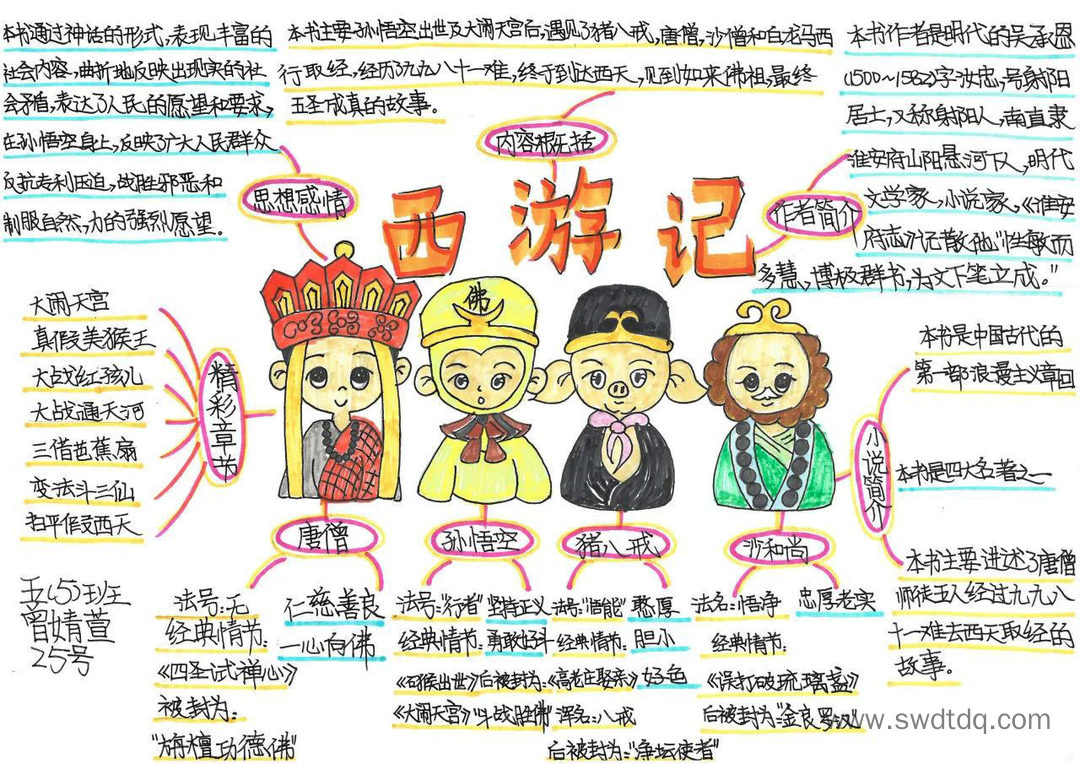 本书通过神话的形式,表现丰富的
社会内容,曲折地反映出现实的社
会矛盾,表达了人民的愿望和要求,
在孙悟空身上,反映了广大人民群众
反抗专利压迫,战胜邪恶和
制服自然,力的强烈愿望。
思想感情
本书主要孙悟空出世及大闹天宫后,遇见了猪八戒,唐僧,沙僧和白龙马西
行取经,经历了九九八十一难,终于到达西天,见到如来佛祖,最终
五圣成真的故事。
内容概括
本书作者是明代的吴承恩
(1500~1582)字汝忠,号射阳
居士,又称射阳人,南直隶
淮安府山阳县河下人,明代
文学家,小说家,《淮安
府志》记载他“性敏而
多慧,博极群书,为文下笔立成。”
作者简介
西游记
佛
大闹天宫
真假美猴王
大战红孩儿
大战通天河
三借芭蕉扇
变法斗三仙
西天
精彩章节
本书是中国古代的
第一部浪漫主义章回
本书是四大名著之一
本书主要进述了唐僧
师徒五人经过九九八
十一难去西天取经的
故事。
小说简介
唐僧
法号:无
经典情节:
《四圣试禅心》
被封为:
“旃檀功德佛”
仁慈善良
一心向佛
孙悟空
法号:“行者”
经典情节:
《石猴出世》
《大闹天宫》
坚持正义
勇敢好斗
后被封为:
“斗战胜佛”
猪八戒
法号:“悟能”
经典情节:
《高老庄娶亲》
浑名:八戒
后被封为:“净坛使者”
憨厚
胆小
好色
沙和尚
法名:悟净
经典情节:
《误打破琉璃盏》
后被封为:“金良罗汉”
忠厚老实
五(5)班
曾婧萱
25号
www.swdtdq.com